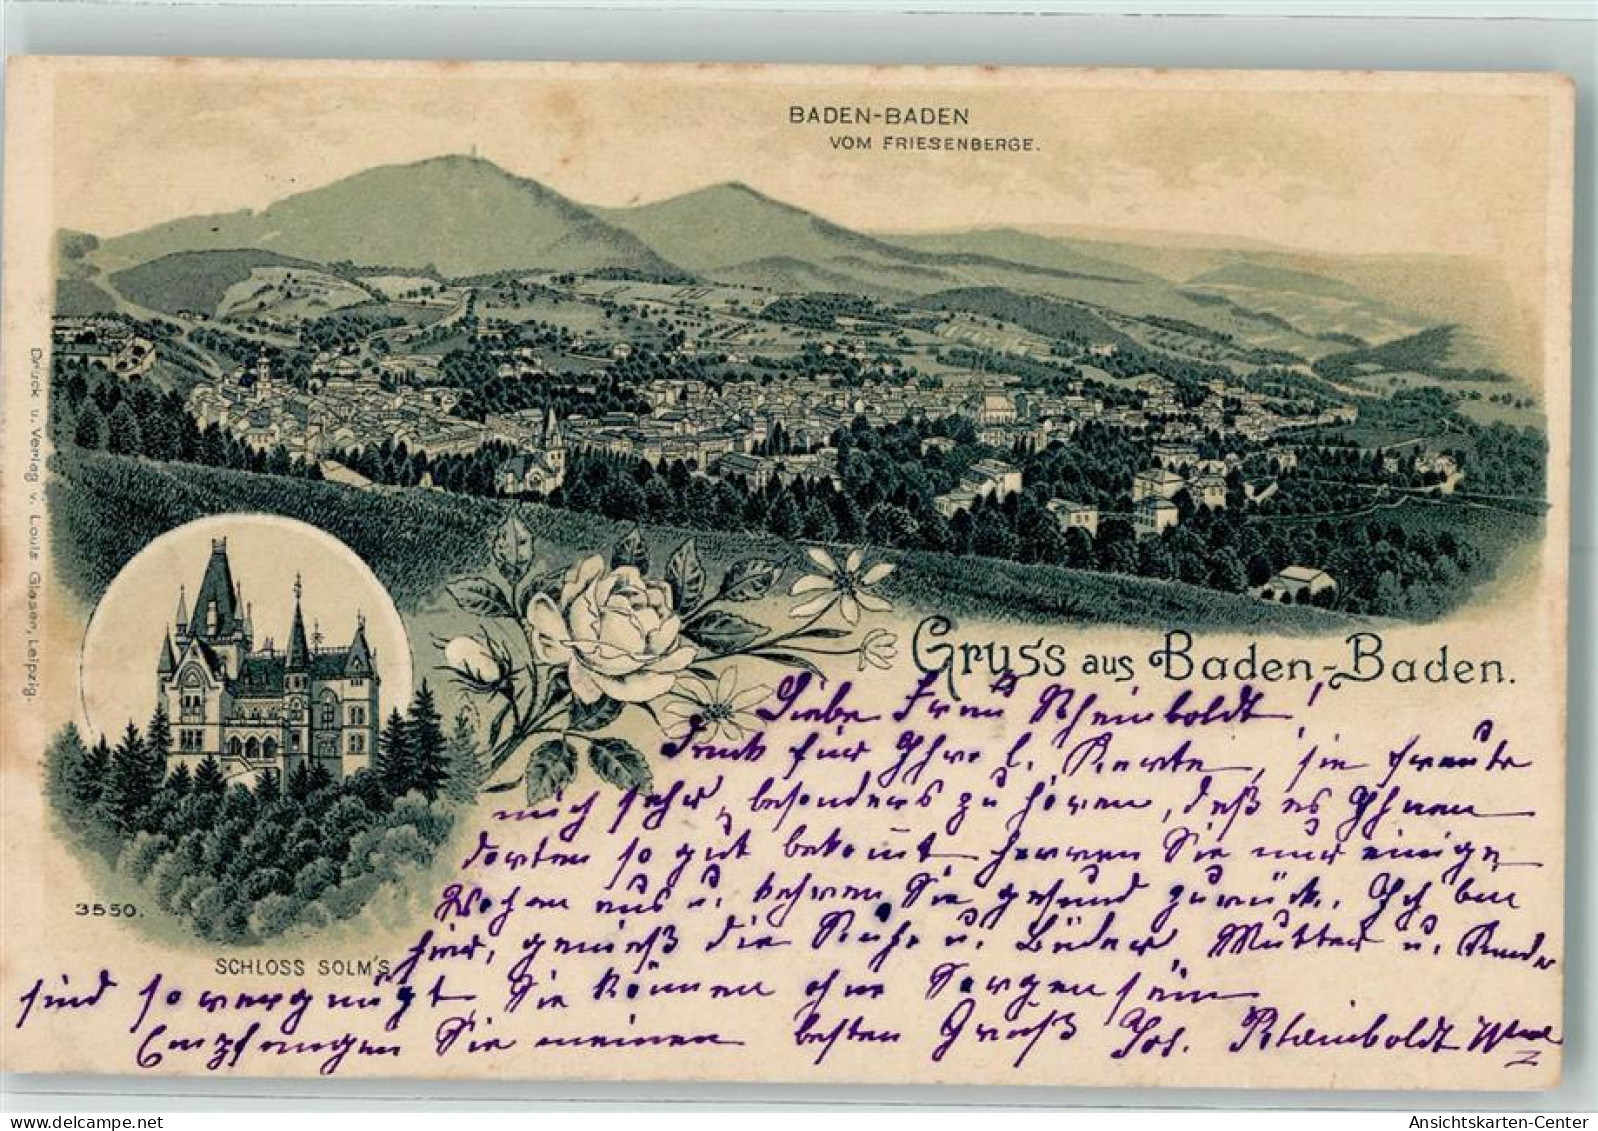 BADEN-BADEN
VOM FRIESENBERGE.
Druck u. Verlag v. Louis Glaser, Leipzig.
Gruss aus Baden-Baden.
Liebe Frau Rheinboldt!
Dank für Ihre l. Karte, sie freute
mich sehr, besonders zu hören, daß es Ihnen
dorten so gut bekomt harren Sie nur einige
Wochen aus u. kehren Sie gesund zurück. Ich bin
hier, genieß die Ruhe u. Bäder, Mutter u. Kinder
sind so vergnügt, Sie können ohne Sorgen sein
Empfangen Sie meinen besten Gruß Jos. Rheinboldt
3550.
SCHLOSS SOLM'S
AnsichtsKarten-Center